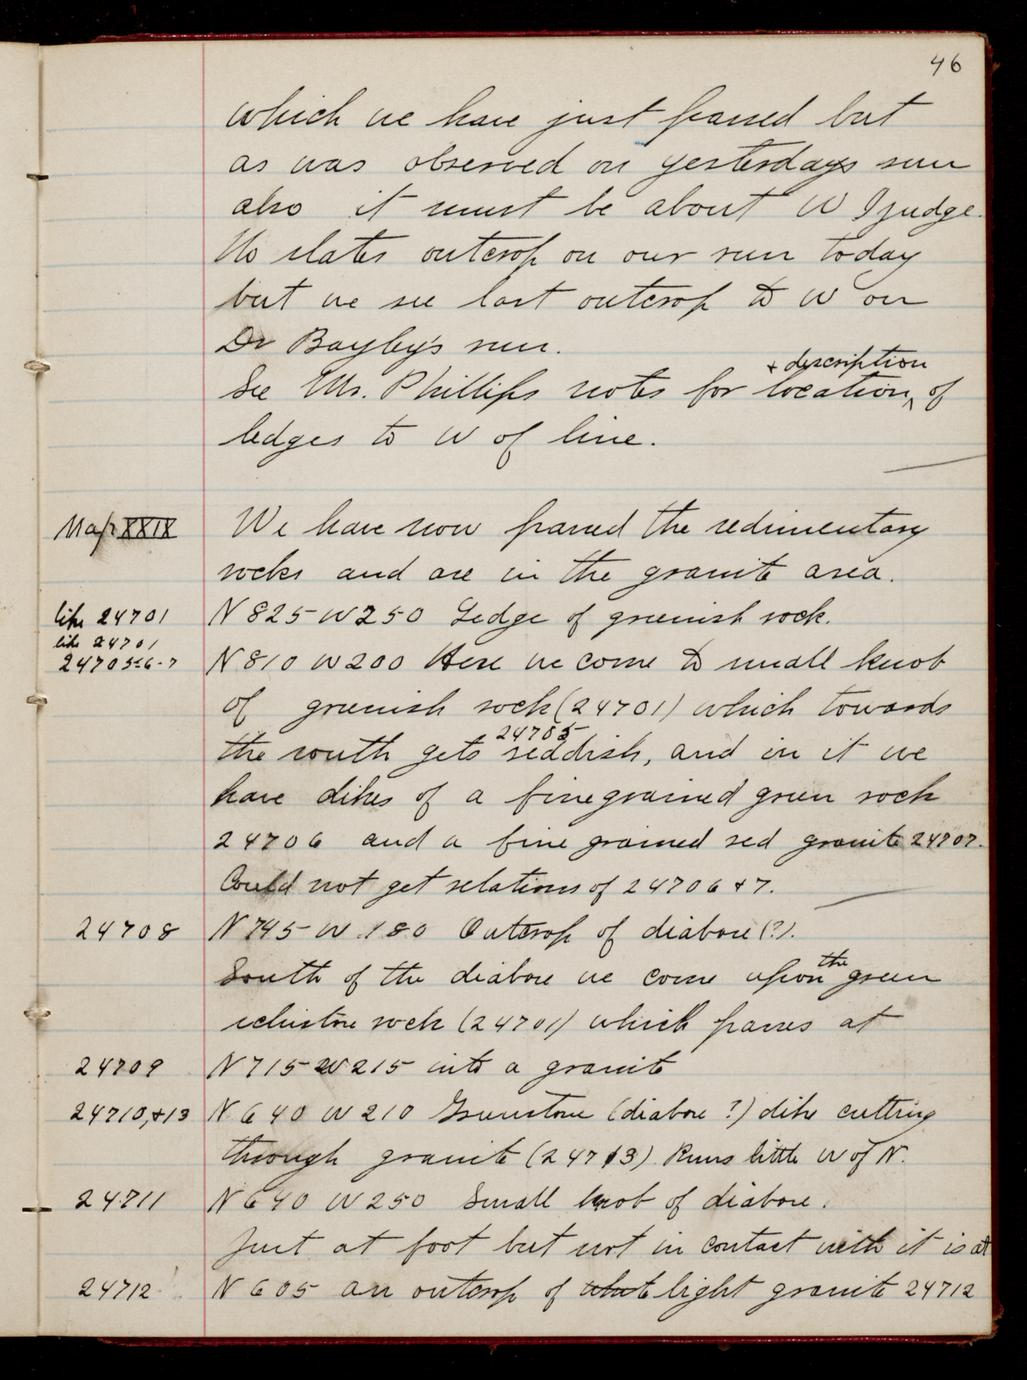 46
which we have just passed but
as was observed on yesterdays run
also it must be about W I judge.
No slates outcrop on our run today
but we see last outcrop to W on
Dr Bayley's run.
+ description
See Mr. Phillips notes for location ^ of
ledges to W of line.
Map XXIX We have now passed the sedimentary
rocks and are in the granite area.
like 24701 N 825 W 250 Ledge of greenish rock.
like 24701
24705-6-7 N 810 W 200 Here we come to small knob
of greenish rock (24701) which towards
24705
the south gets reddish, and in it we
have dikes of a finegrained green rock
24706 and a fine grained red granite 24707.
Could not get relations of 24706 + 7.
24708 N 745 W 180 Outcrop of diabase (?).
the
South of the diabase we come upon green
schistose rock (24701) which passes at
24709 N 715 W 215 into a granite
24710, + 13 N 640 W 210 Greenstone (diabase ?) dike cutting
through granite (24713) Runs little W of N.
24711 N 640 W 250 Small knob of diabase.
Just at foot but not in contact with it is at
24712 N 605 an outcrop of light granite 24712